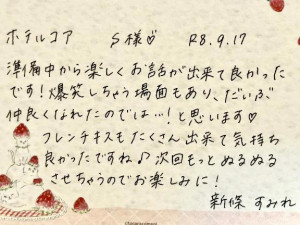 ホテルコア S様♡ R8.9.17
準備中から楽しくお話が出来て良かった
です!爆笑しちゃう場面もあり、だいぶ
仲良くなれたのでは…!と思います♡
フレンチキスもたくさん出来て気持ち
良かったですね♪次回もっとぬるぬる
させちゃうのでお楽しみに!
新條 すみれ